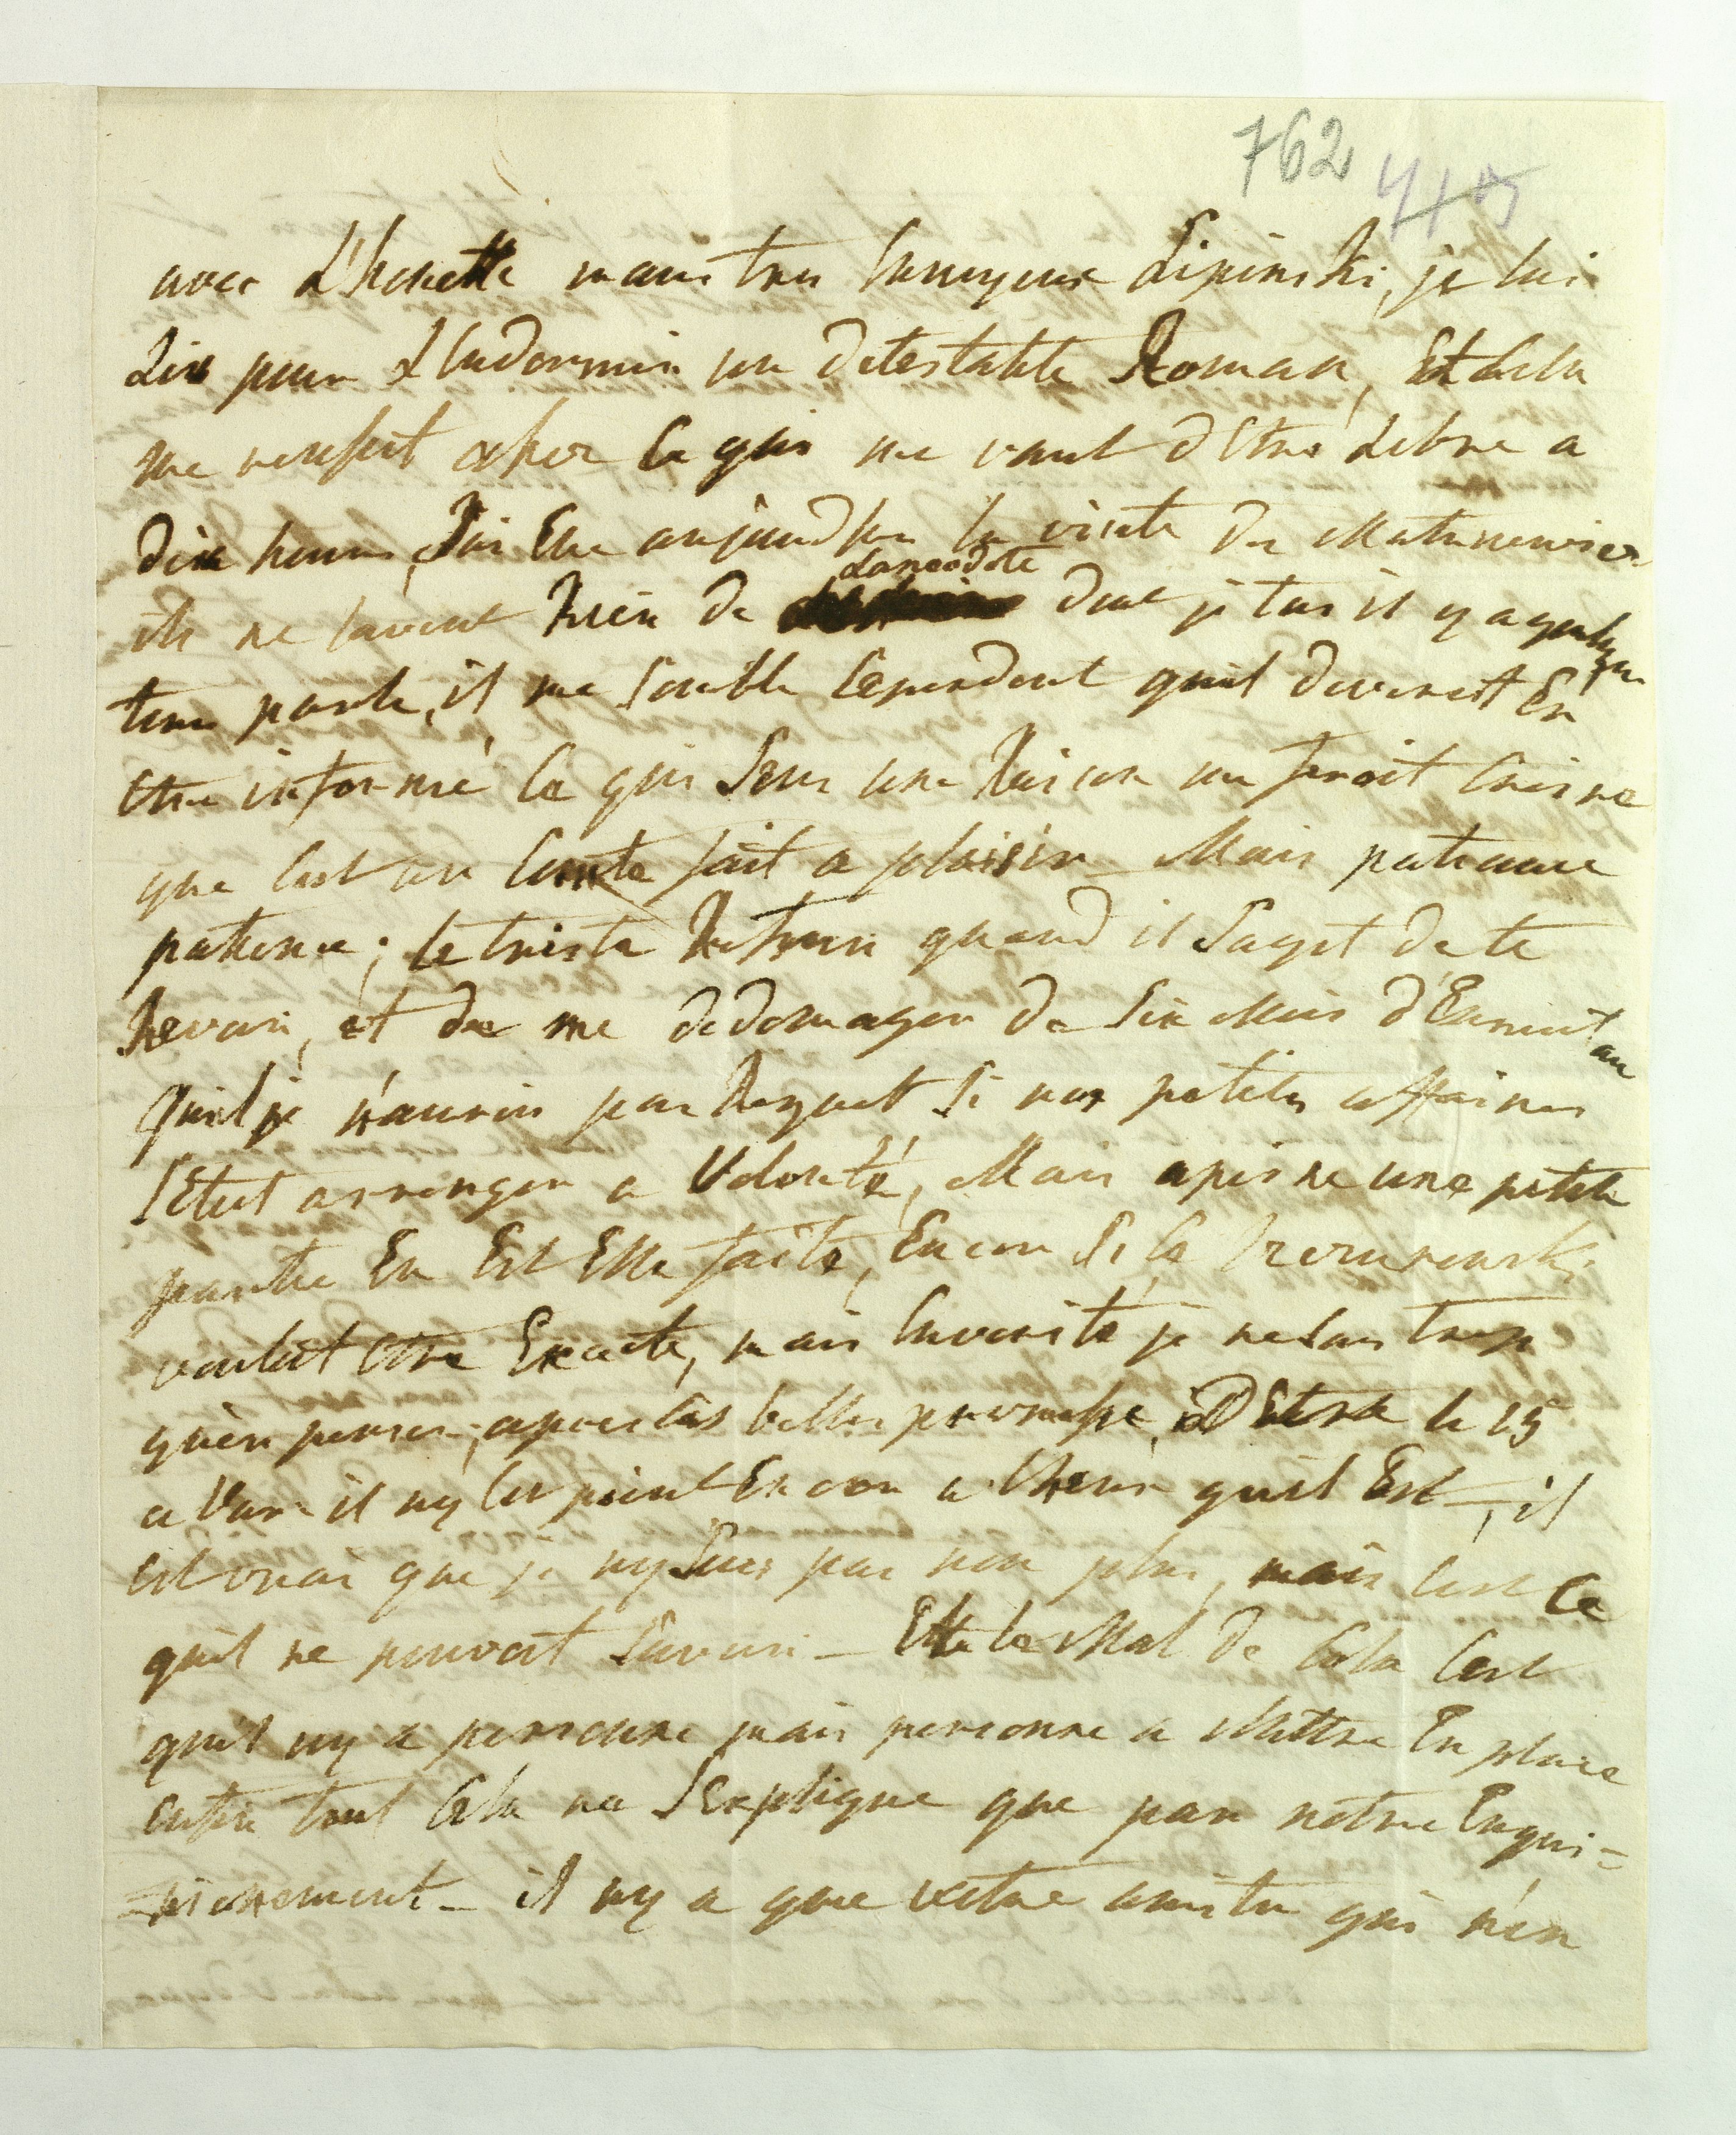 762 475
avec L'honette mais tres Ennuyeux Lipinski, je lui
Lis pour L'endormir un detestable Roman, Et cela
me reussit assez ce qui me vaut d'Etre Libre a
dix heures, J'ai Eue aujourdhui la visite des
ils ne savent Rien de Lanecdote dont je tais il y a quelque
tems parlé, il me semble Cependent quil devroit En
Etre informé ce qui sans une Raison me feroit Croire
que C'est un Conte fait a plaisir _ Mais patience
patience; le triste Retour quand il s'agit de te
Revoir, et de me dedomager de Six Mois d'Ennuit au
quel je n'aurois pas Regret Si nos petites affaires
S'Etoit arranger a Volonté, Mais a peine une petite
partie En Est Elle faite, Encore Si ce
vouloit Etre Exacte, mais Enverité je ne sais trop
qu'en penser, apres ces belles promesse, D'Etre le 15
a Vars il ny Est point Encore a l'heure quil Est _, il
est vrai que je ny suis pas non plus, mais C'est Ce
quil ne pouvoit Savoir _ Et le Mal de Cela C'est
quil ny a personne mais personne a Mettre En place
enfin tout Cela ne S'Explique que par notre Engui=
=nionement _ il ny a que votre amitie qui n'en